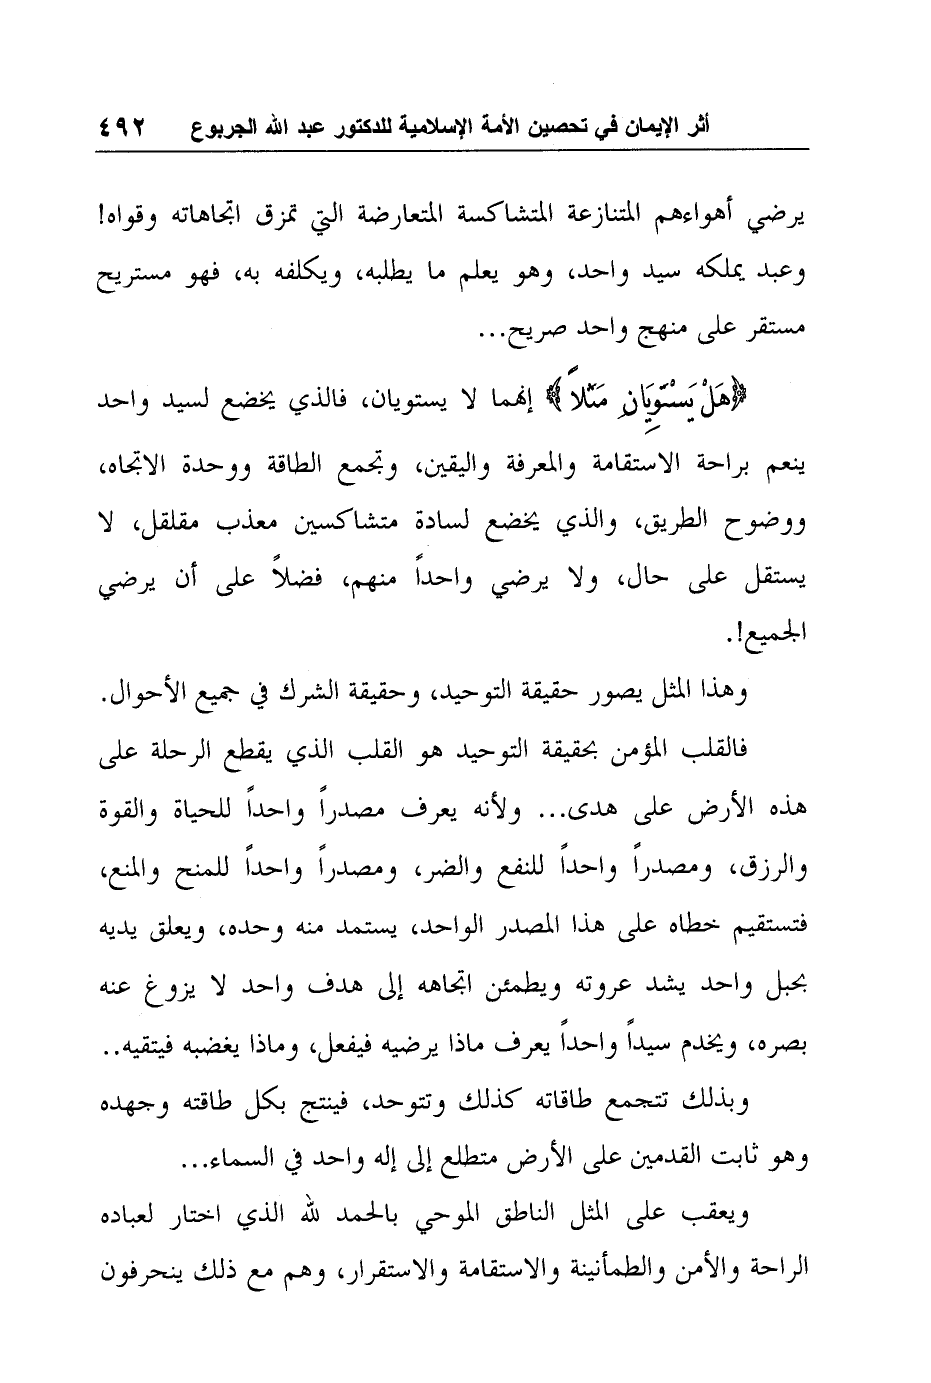 أثر الإيمان في تحصين الأمة الإسلامية للدكتور عبد الله الجربوع ٤٩٢
يرضي أهواءهم المتنازعة المتشاكسة المتعارضة التي تمزق اتجاهاته وقواه!
وعبد يملكه سيد واحد، وهو يعلم ما يطلبه، ويكلفه به، فهو مستريح
مستقر على منهج واحد صريح...
﴿هَلْ يَسْتَوِيَانِ مَثَلاً﴾ إنهما لا يستويان، فالذي يخضع لسيد واحد
ينعم براحة الاستقامة والمعرفة واليقين، وتجمع الطاقة ووحدة الاتجاه،
ووضوح الطريق، والذي يخضع لسادة متشاكسين معذب مقلقل، لا
يستقل على حال، ولا يرضي واحداً منهم، فضلاً على أن يرضي
الجميع!.
وهذا المثل يصور حقيقة التوحيد، وحقيقة الشرك في جميع الأحوال.
فالقلب المؤمن بحقيقة التوحيد هو القلب الذي يقطع الرحلة على
هذه الأرض على هدى... ولأنه يعرف مصدراً واحداً للحياة والقوة
والرزق، ومصدراً واحداً للنفع والضر، ومصدراً واحداً للمنح والمنع،
فتستقيم خطاه على هذا المصدر الواحد، يستمد منه وحده، ويعلق يديه
بحبل واحد يشد عروته ويطمئن اتجاهه إلى هدف واحد لا يزوغ عنه
بصره، ويخدم سيداً واحداً يعرف ماذا يرضيه فيفعل، وماذا يغضبه فيتقيه..
وبذلك تتجمع طاقاته كذلك وتتوحد، فينتج بكل طاقته وجهده
وهو ثابت القدمين على الأرض متطلع إلى إله واحد في السماء...
ويعقب على المثل الناطق الموحي بالحمد لله الذي اختار لعباده
الراحة والأمن والطمأنينة والاستقامة والاستقرار، وهم مع ذلك ينحرفون